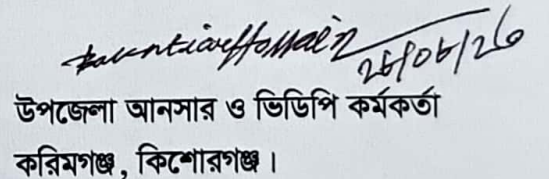 উপজেলা আনসার ও ভিডিপি কর্মকর্তা
করিমগঞ্জ, কিশোরগঞ্জ।